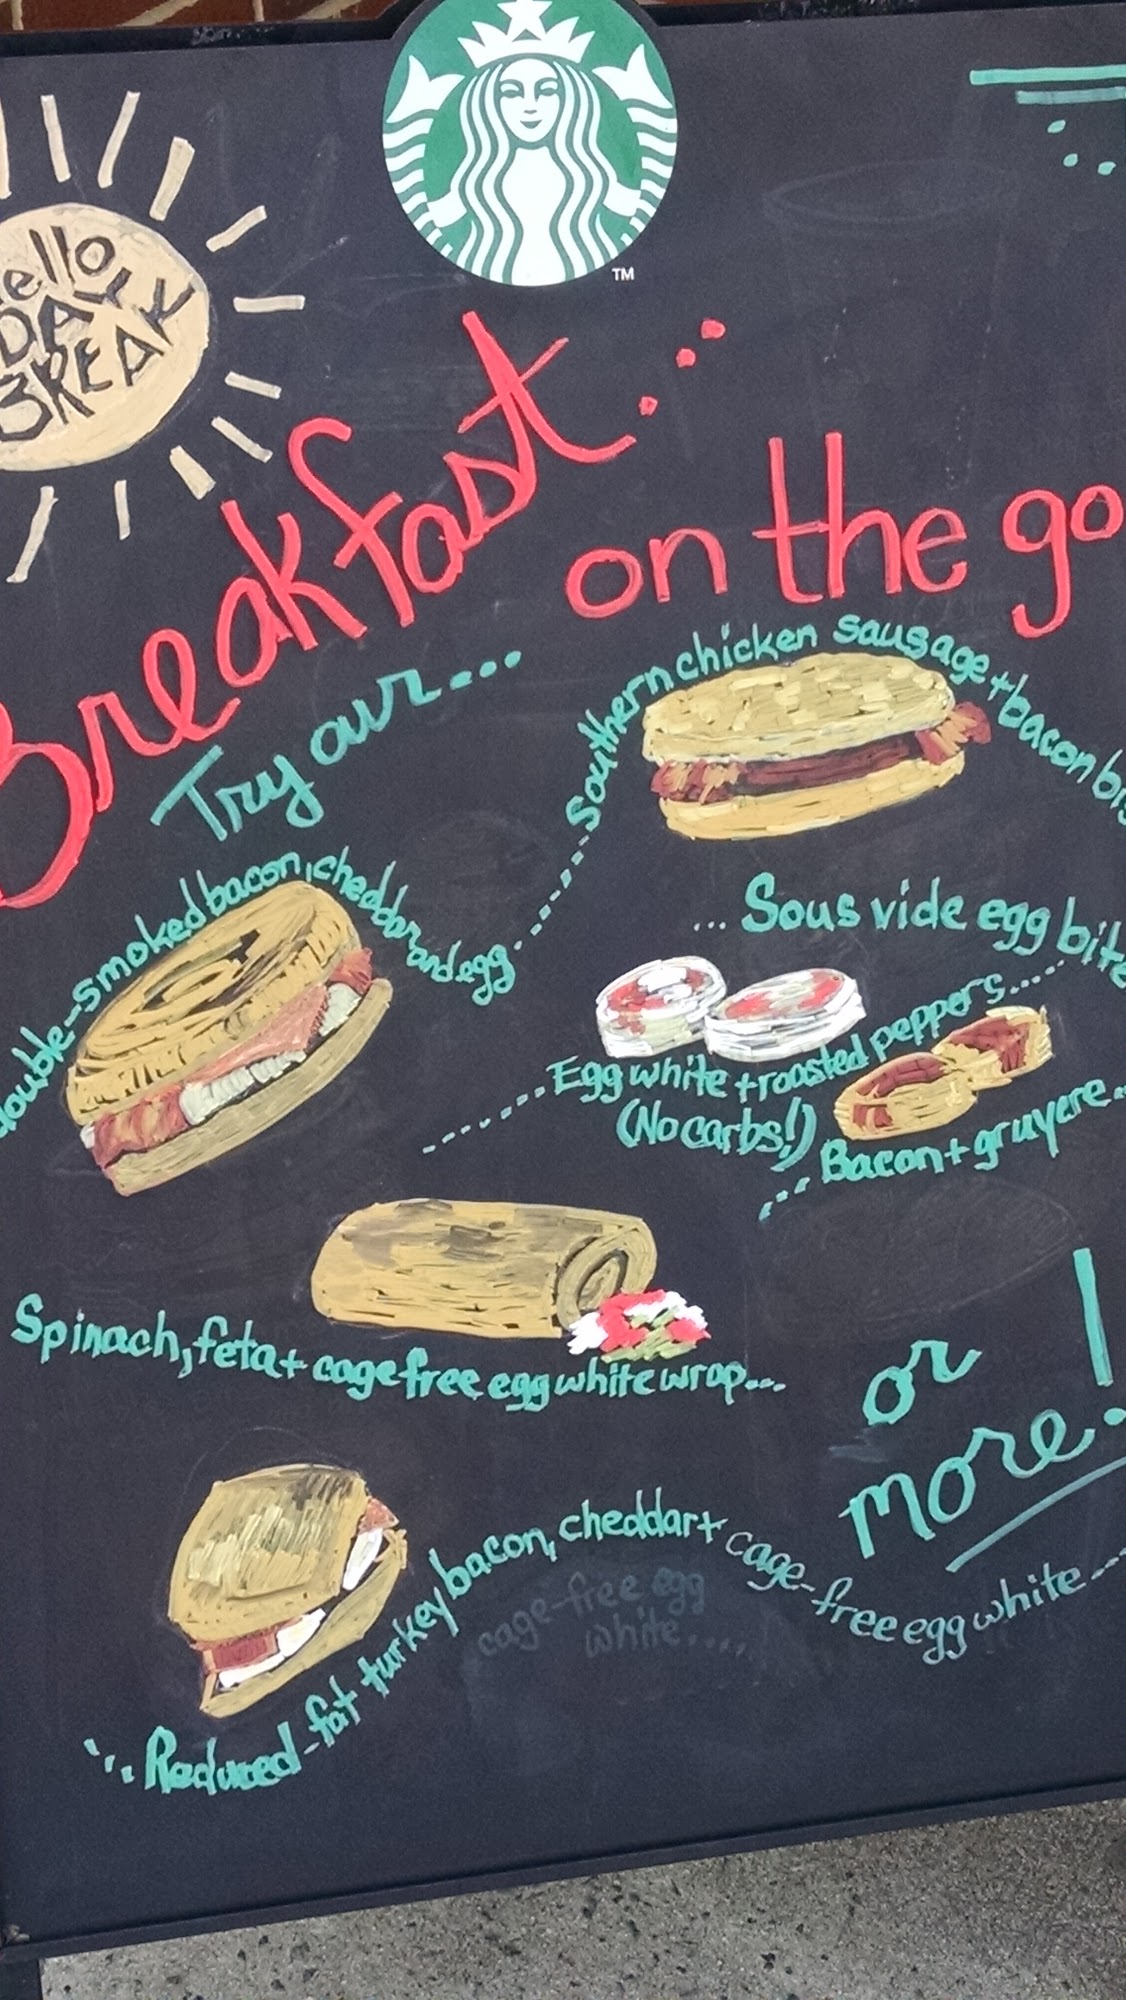 TM
ello,
DAY
BREAK
Breakfast...
on the go
Try our...
Southern chicken sausage + bacon bis
double-smoked bacon, cheddar and egg
... Sous vide egg bite
Egg white + roasted peppers...
(No carbs!)
Bacon + gruyere...
Spinach, feta + cage free egg white wrap...
or
more!
Reduced-fat turkey bacon, cheddar + cage-free egg white...
cage-free egg
white.....